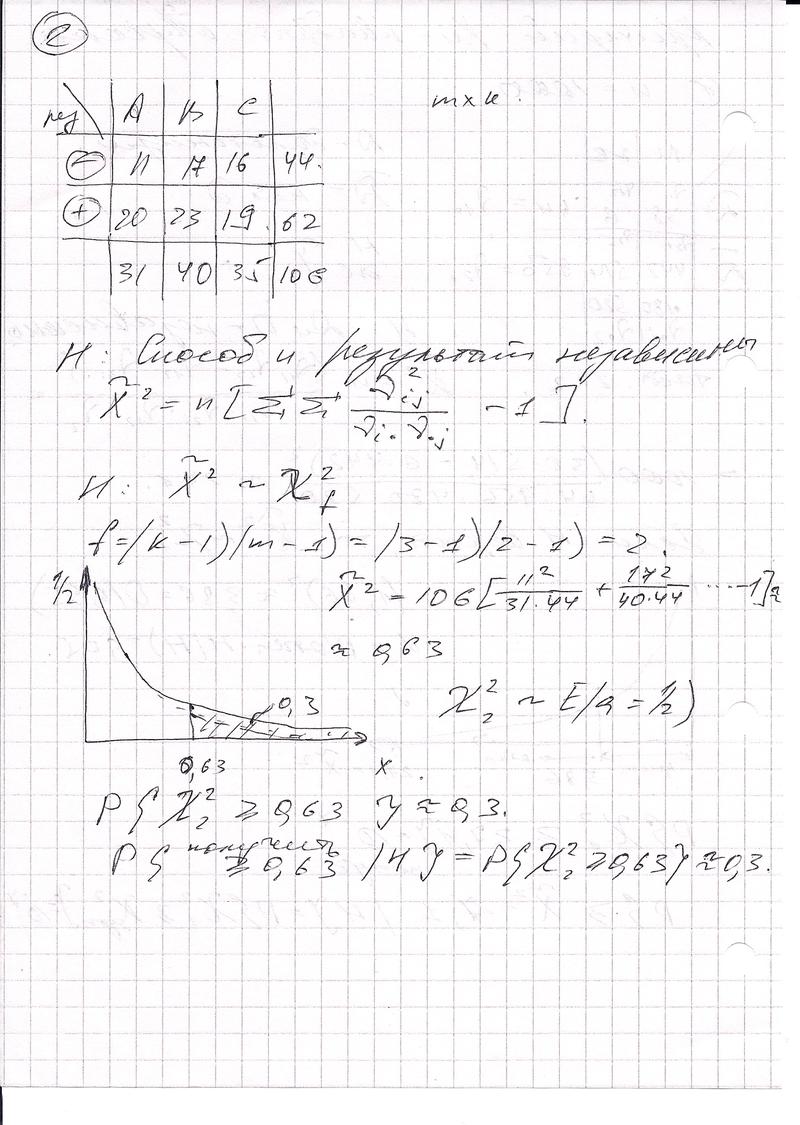 2
рез A B C
m×k.
⊖ 11 17 16 44.
⊕ 20 23 19. 62
31 40 35 106
H: Способ и результат независимы
X̃² = n [ ΣΣ ν²ij / (νi· ν·j) − 1 ].
H: X̃² ~ χ²f
f = (k−1)(m−1) = (3−1)(2−1) = 2.
1/2
X̃² = 106 [ 11²/(31·44) + 17²/(40·44) ...−1] ≈
≈ 0,63
0,3
χ²₂ ~ E(a = 1/2)
0,63 x
P{ χ²₂ ≥ 0,63 } ≈ 0,3.
получить
P{ ≥ 0,63 /H } = P{ χ²₂ ≥ 0,63} ≈ 0,3.